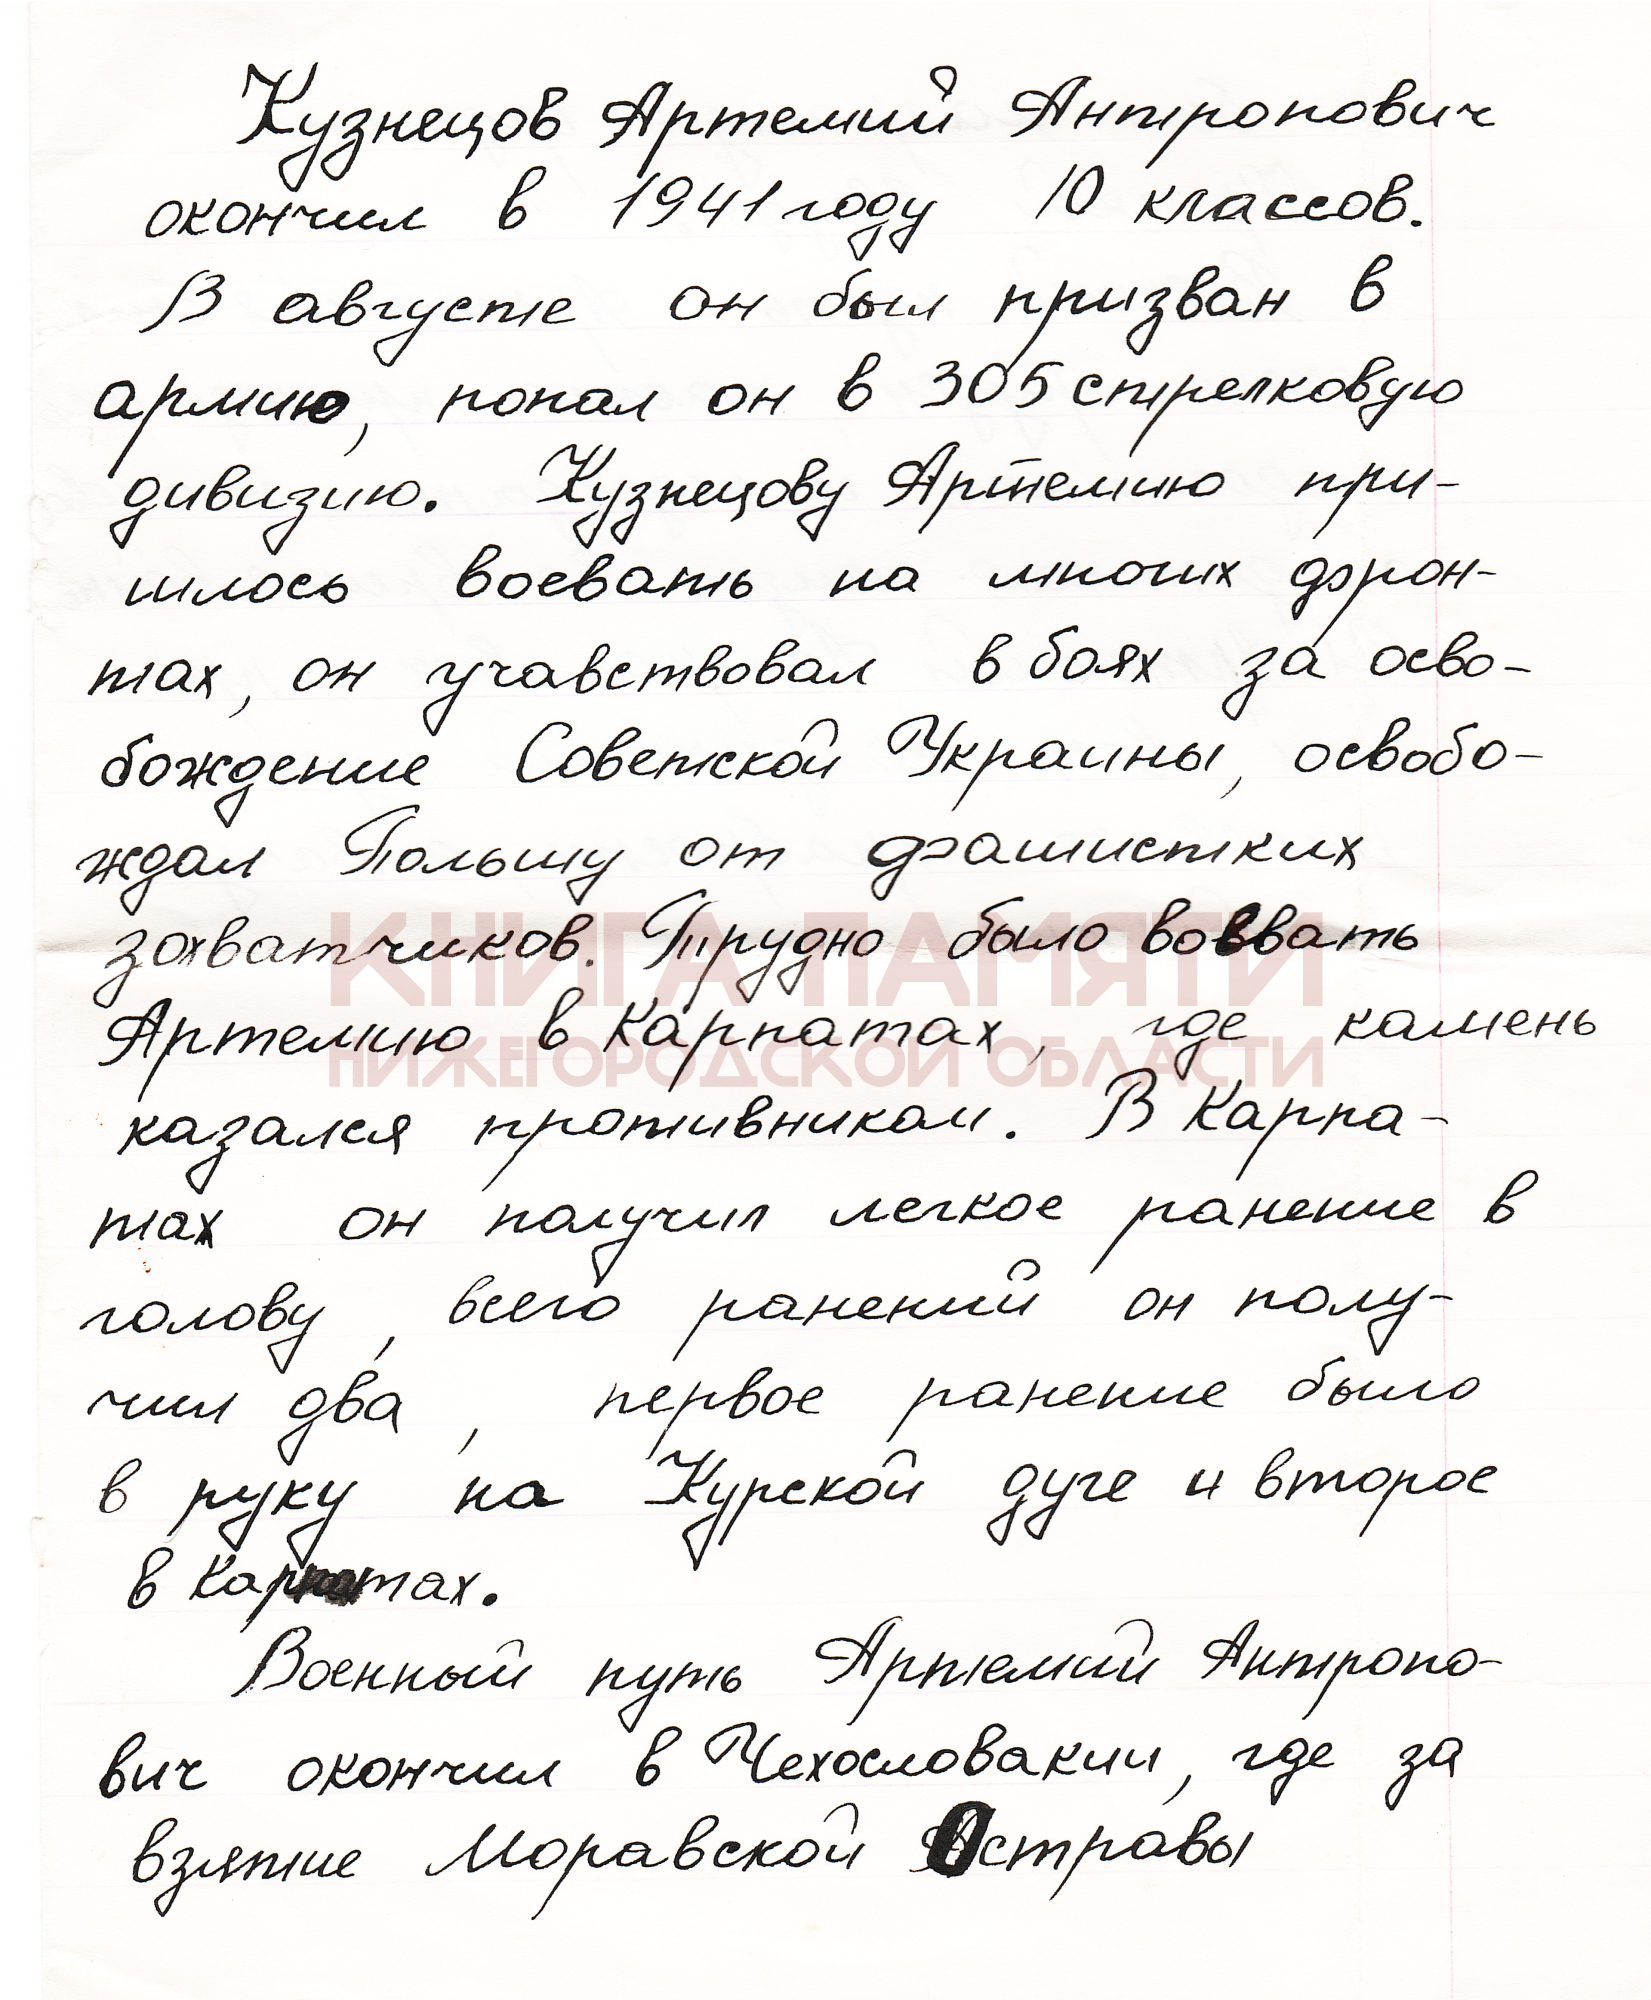 Кузнецов Артемий Антропович
окончил в 1941 году 10 классов.
В августе он был призван в
армию, попал он в 305 стрелковую
дивизию. Кузнецову Артемию при-
шлось воевать на многих фрон-
тах, он учавствовал в боях за осво-
бождение Советской Украины, освобо-
ждал Польшу от фашистких
захватчиков. Трудно было воевать
КНИГА ПАМЯТИ
Артемию в Карпатах, где камень
НИЖЕГОРОДСКОЙ ОБЛАСТИ
казался противником. В Карпа-
тах он получил легкое ранение в
голову, всего ранений он полу-
чил два, первое ранение было
в руку на Курской дуге и второе
в Карпатах.
Военный путь Артемий Антропо-
вич окончил в Чехословакии, где за
взятие Моравской Остравы